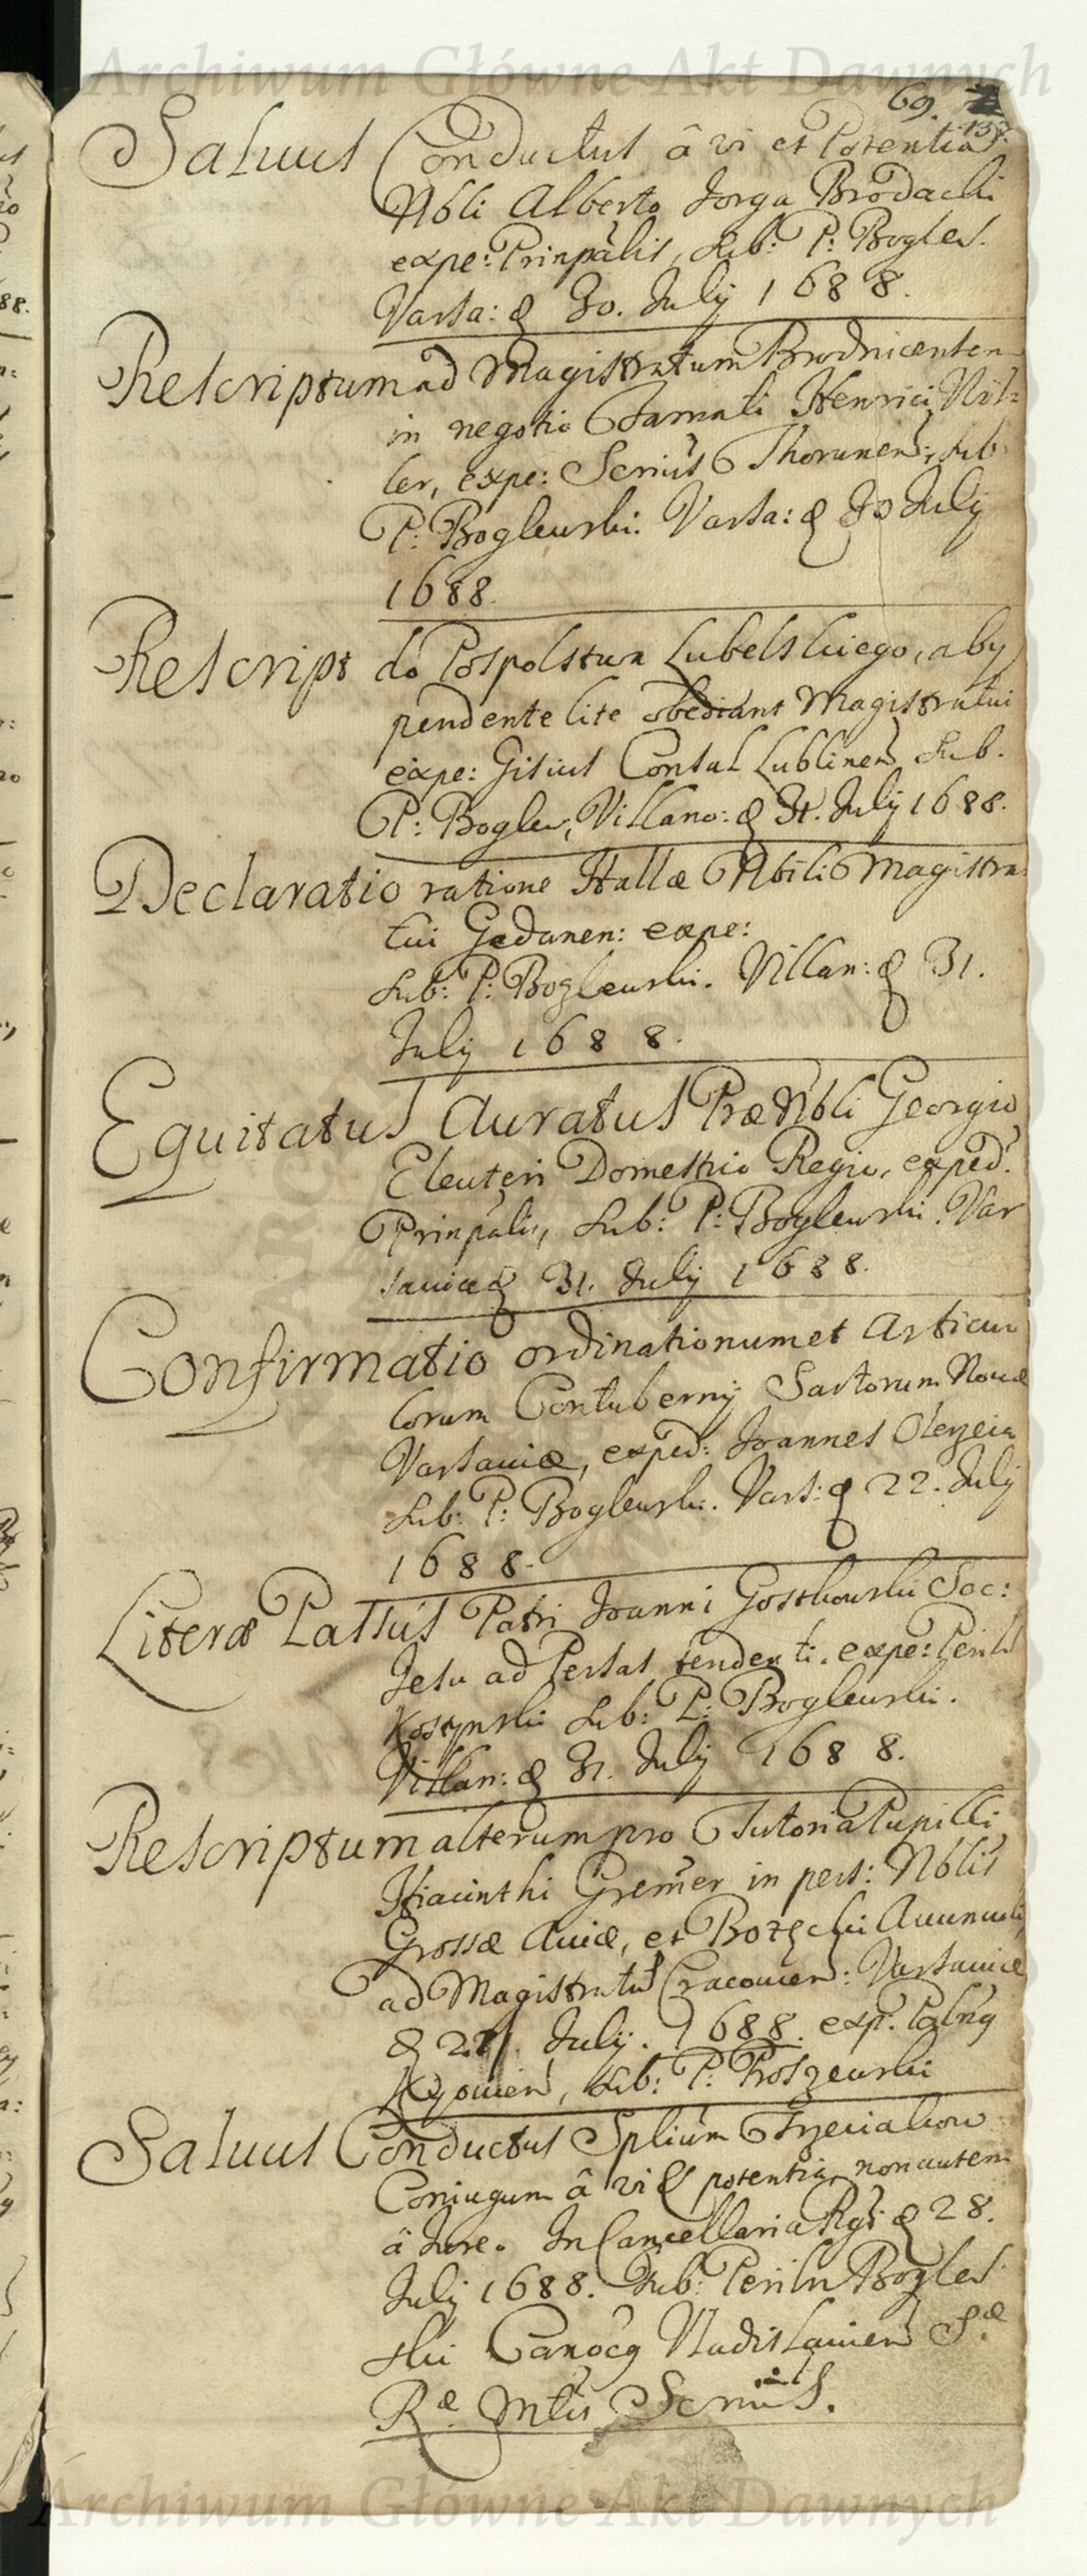 Archiwum Główne Akt Dawnych
69.
137.
Salvus Conductus â vi et Potentia
Nbli Alberto Jorga Brodacki
expe: Prinpalis, Sub: P: Boglew.
Varsa: d 30. July 1688.
Rescriptum ad Magistratum Brodnicensem
in negotio Famati Henrici Nit=
ler, expe: Scrius Thorunen: Sub
P: Boglewski. Varsa: d 30 July
1688.
Rescript do Pospolstwa Lubelskiego, aby
pendente lite obediant Magistratui
expe: Gisius Consul Lublinen Sub.
P: Boglew, Villano: d 31. July 1688.
Declaratio ratione Hallæ Nbili Magistra
tui Gedanen: expe:
Sub: P: Boglewski. Villan: d 31.
July 1688.
Equitatus Auratus Præ Nbli Georgio
Eleuteri Domestico Regio, exped.
Prinpalis, Sub: P: Boglewski. Var
saviæ d 31. July 1688.
Confirmatio ordinationum et Articu
lorum Contubernij Sartorum Novæ
Varsaviæ, exped: Joannes
Sub: P: Boglewski. Vars: d 22. July
1688.
Literæ Passus Patri Joanni Gostkowski Soc:
Jesu ad Persas tendenti. expe: Perils
Koszynski Sub: P: Boglewski.
Villan: d 31. July 1688.
Rescriptum alterum pro Tutoria Pupilli
Hiacinthi Gremer in pers: Nblis
Grossæ Aviæ, et Avunculi
ad Magistratu Cracovien: Varsaviæ
d 27. July. 1688. exp.
Kijovien, Sub: P: Proszewski
Salvus Conductus Splium
Coniugum â vi & potentia, non autem
â Jure. In Cancellaria Rgi d 28.
July 1688. Sub: Perilu Boglew
ski Canocg Vladislavien S.æ
R.æ Mtis Scrius.
Archiwum Główne Akt Dawnych